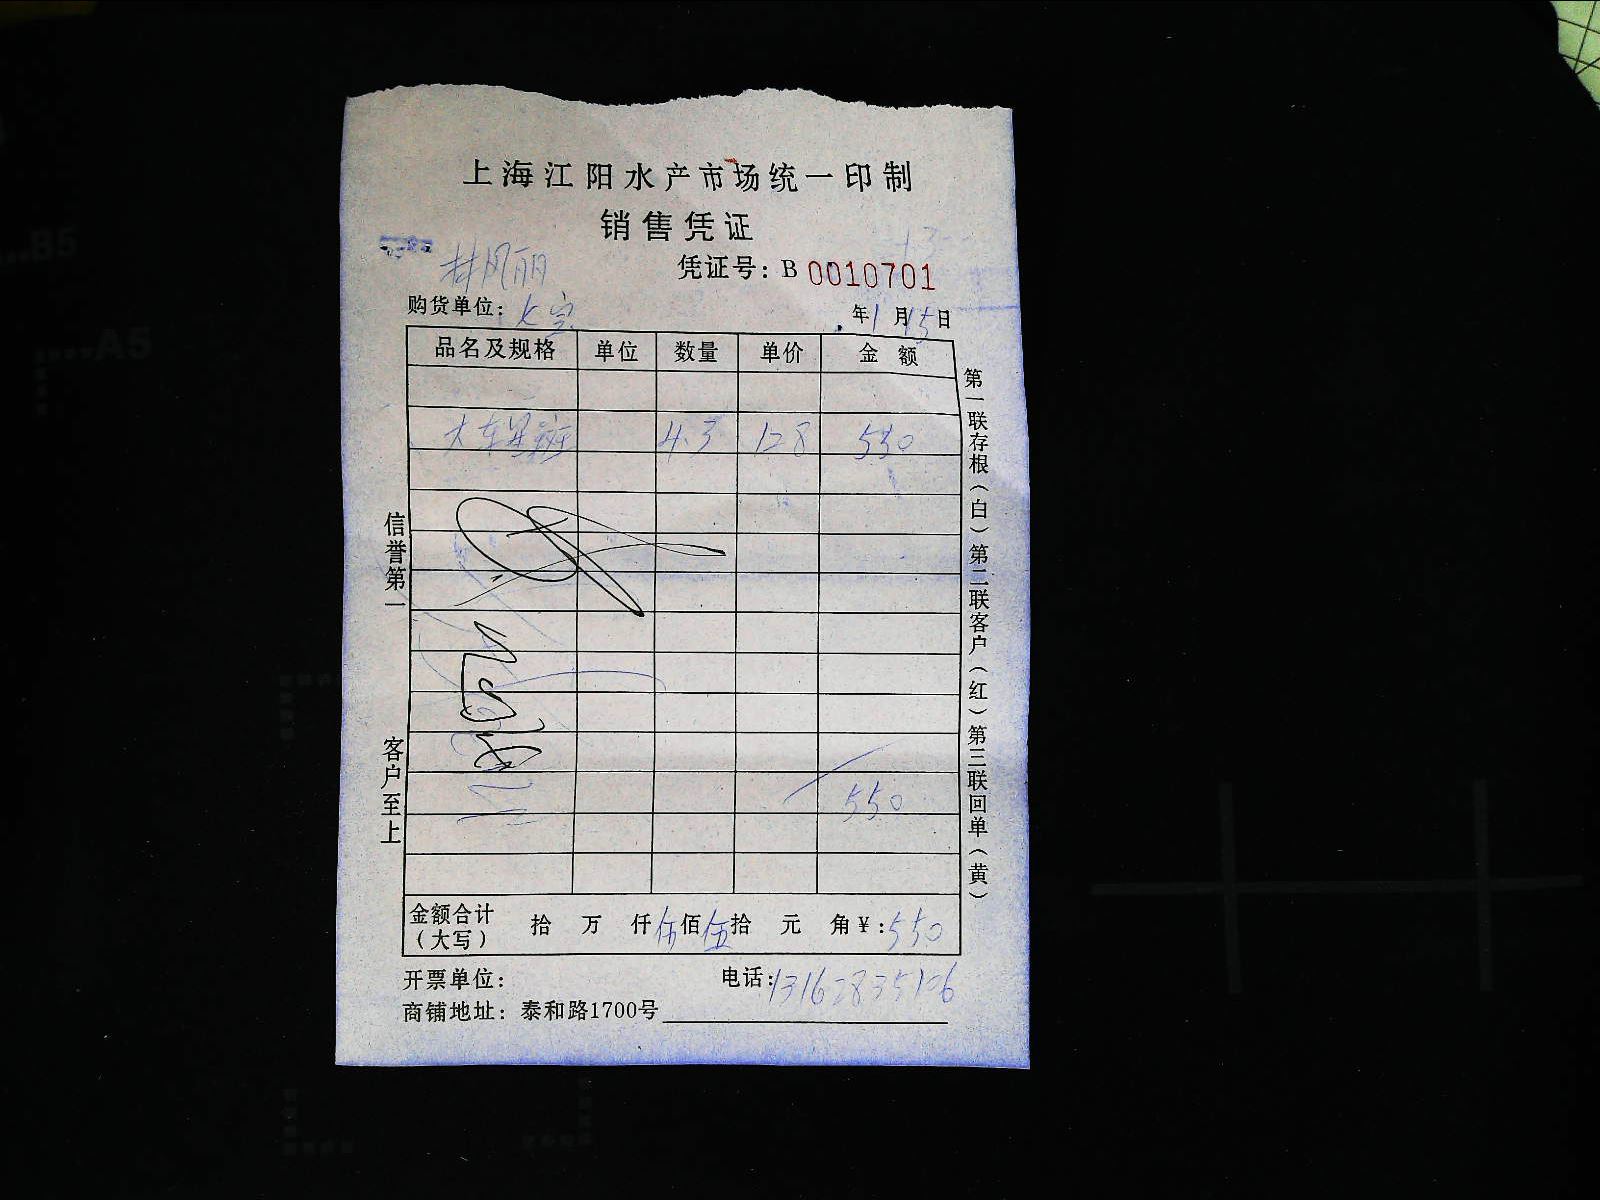 上海江阳水产市场统一印制
销售凭证
凭证号：B 0010701
林凤丽
购货单位：大宝
年1月15日
品名及规格 单位 数量 单价 金额
大东星斑 4.3 128 550
550
金额合计（大写） 拾 万 仟伍佰伍拾 元 角¥：550
开票单位： 电话：13162835126
商铺地址：泰和路1700号
信誉第一 客户至上
第一联存根（白）第二联客户（红）第三联回单（黄）
B5
A5